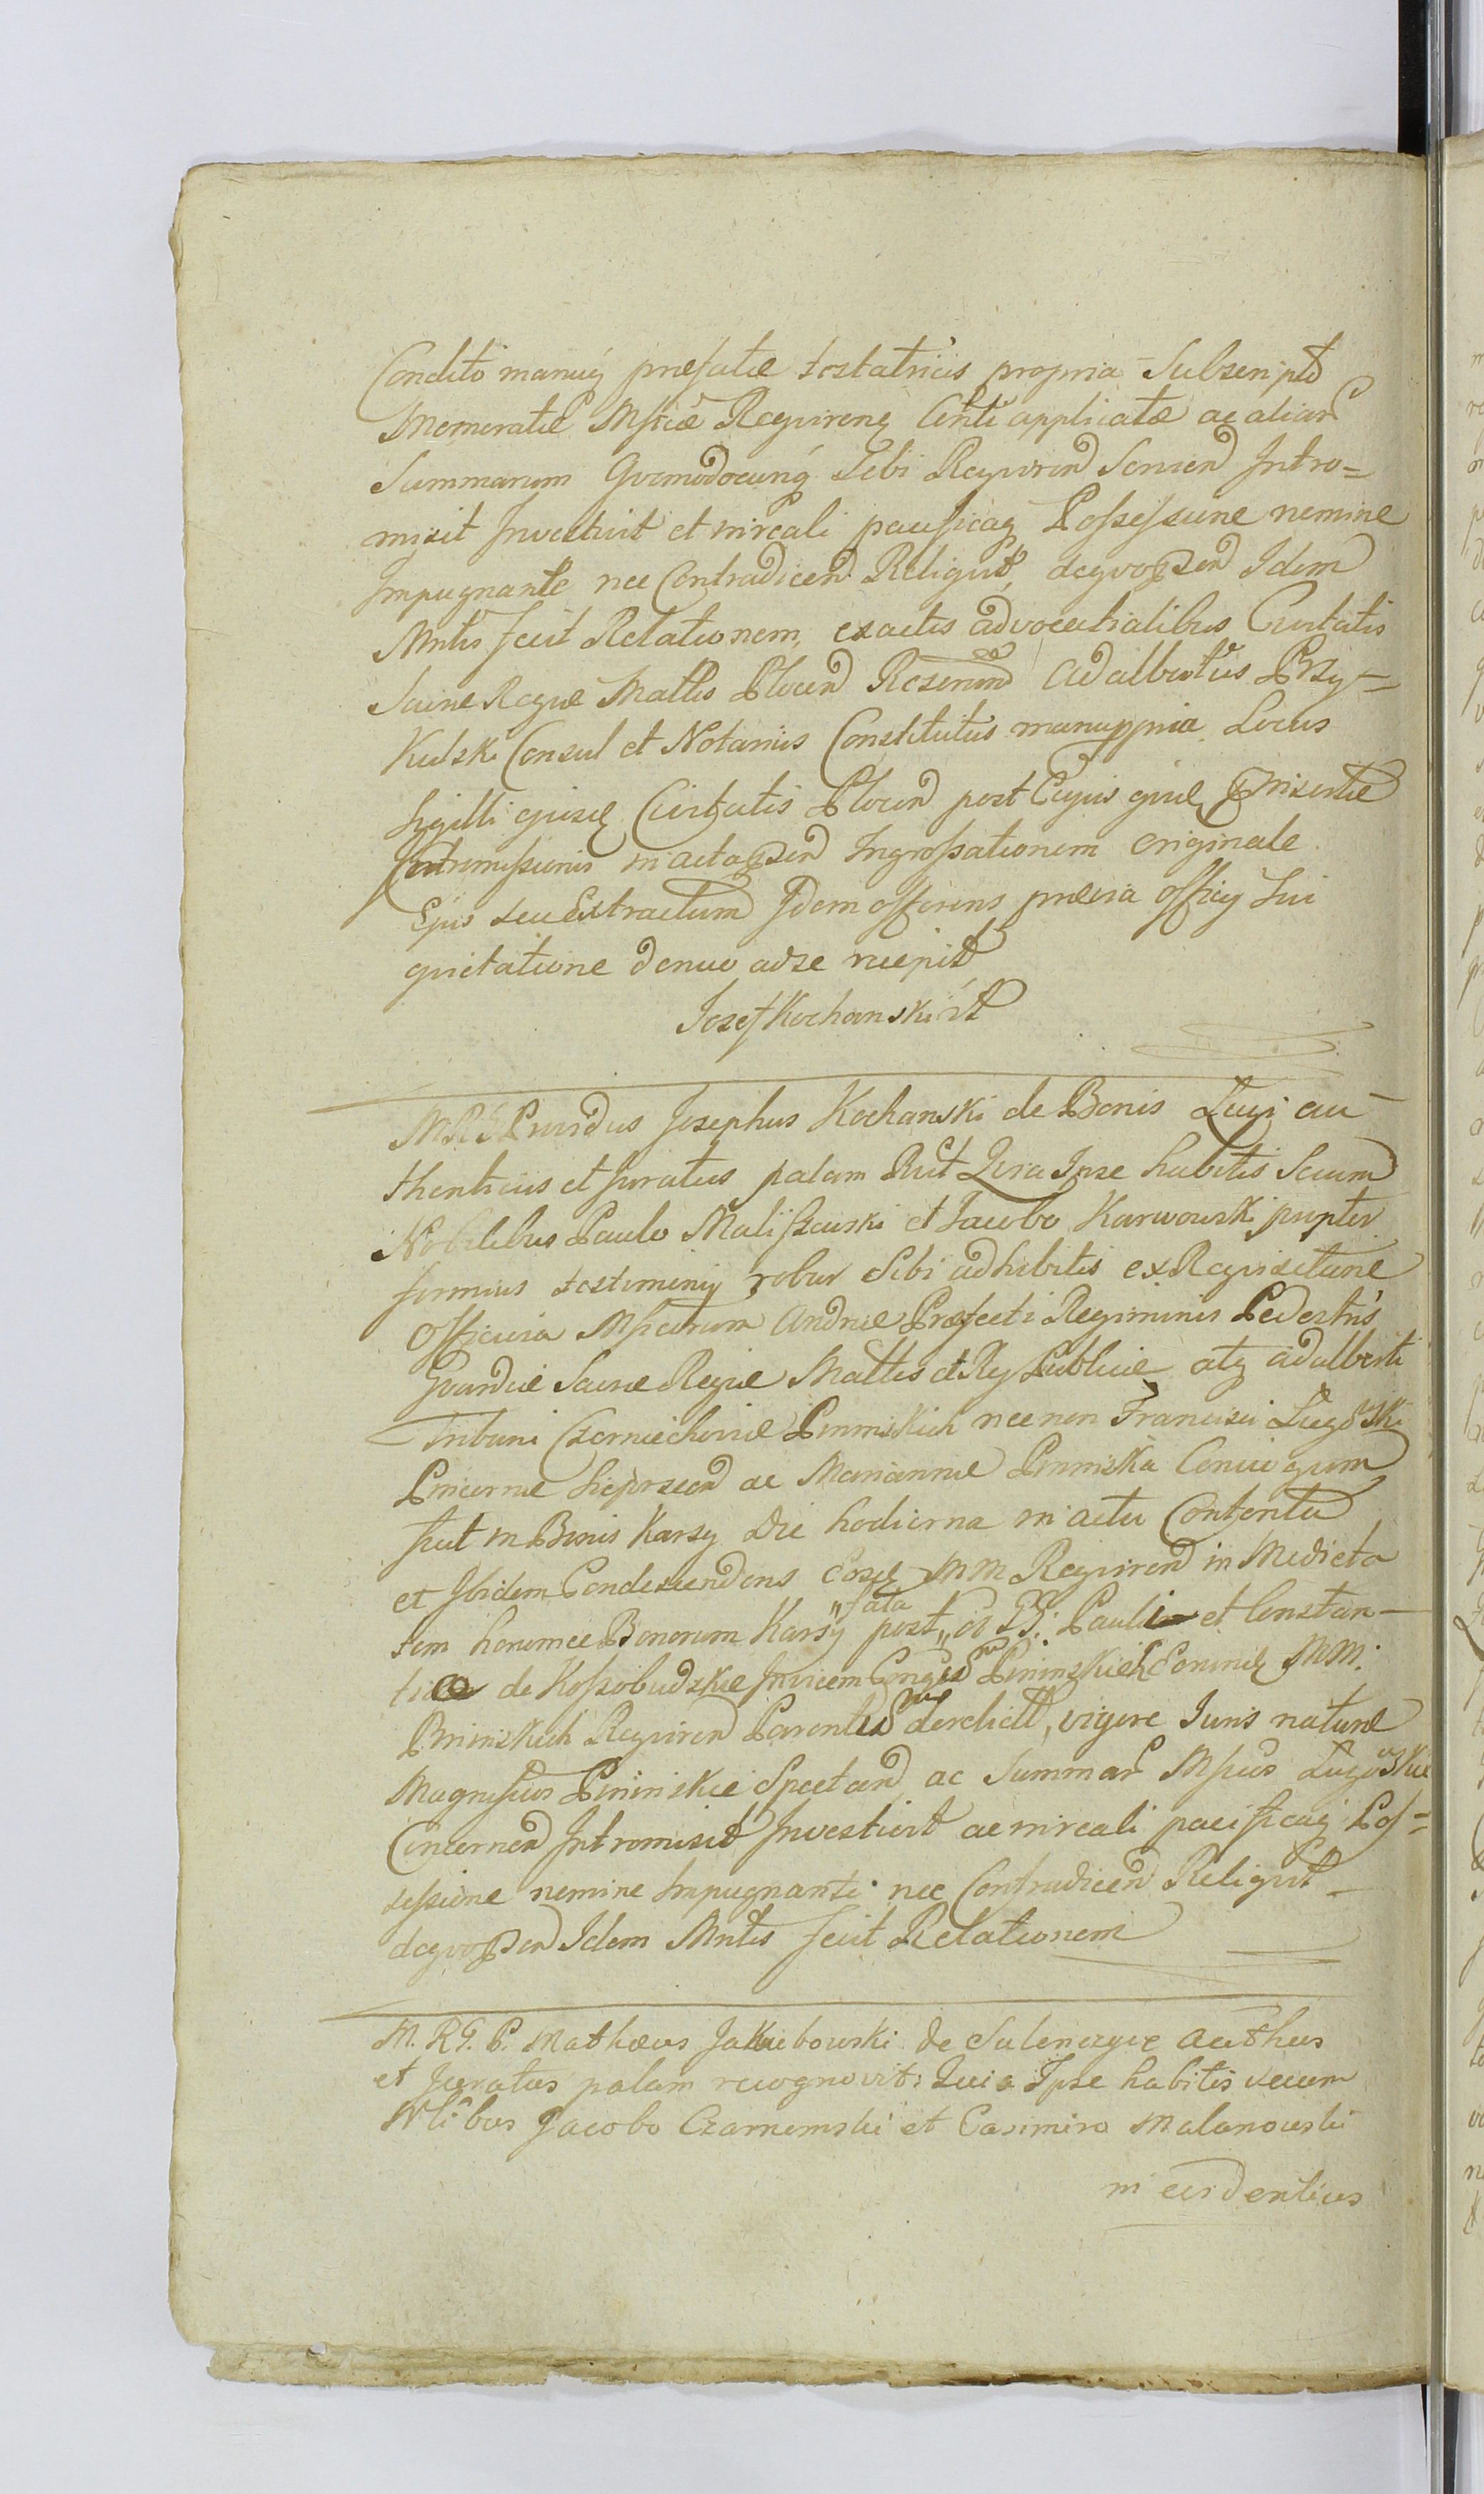 Condito manuq prefatæ testatricis propria Subscripto
Memoratæ Mficæ Requirenq Centi applicatæ ac aliar
Summarum Qvomodocunq Sibi Reqviren Servien Intro=
misit Investivit et in reali pacificaq Possessione nemine
Impugnante nec Contradicen Reliquit, deqvo Psen Idem
Mntis fecit Relationem, ex actis advocatialibus Civitatis
Sacræ Regiæ Mattis Plocen Adalbertus Przy=
Kulski Consul et Notarius Constitutus manuppria Locus
Sigilli ejusdē Civitatis Plocen post Cujus qvidē Prisertæ
Intromissionis in acta Psen Ingrossationem Originale
Ejus seu Extractum Idem offerens prævia officij Sui
qvietatione denuo ad se recepit
Iozef Kochanski
M.R.G. Providus Josephus Kochanski de Bonis Ługi au=
thenticus et Juratus palam Rcit Qvia Ipse habitis Secum
Nobilibus Paulo Maliszewski et Jacobo Karwowski propter
firmius testimonij robur Sibi adhibitis ex Reqvisitione
Officiosa Mficorum Andreæ Præfecti Regiminis Pedestris
Gvardiæ Sacræ Regiæ Mattis et Rey Publicæ atq Adalberti
Tribuni Czerniechoviæ Pninskich nec non Francisci Ługoski
Pincernæ ac Mariannæ Pninska Coniugum
fuit in Bonis Karsy Die hodierna in actu Contenta
et Ibidem Condescendens Eosdē MM Reqviren in Medieta
tem honomee Bonorum Karsy post „fata„ GG: Pauli et Constan=
tiæ de Kossobudzkie Invicem Congū Pninskich Eorundē MM:
Pninskich Reqviren Parentū derelict, vigore Iuris naturæ
Magnificos Pninskie Spectan ac Summar Mficos Ługoskie
Concernen Intromisit Investivit ac in reali pacificaq Pos=
sessione nemine Impugnante nec Contradicen Reliqvit
deqvo Psen Idem Mntis fecit Relationem
M. R G. P. Mathæus Jakubowski de Sulencyce Authus
et Juratus palam recognovit: Quia Ipse habitis secum
Nlibus Jacobo Czarnomski et Casimiro Malanowski
in evidentius